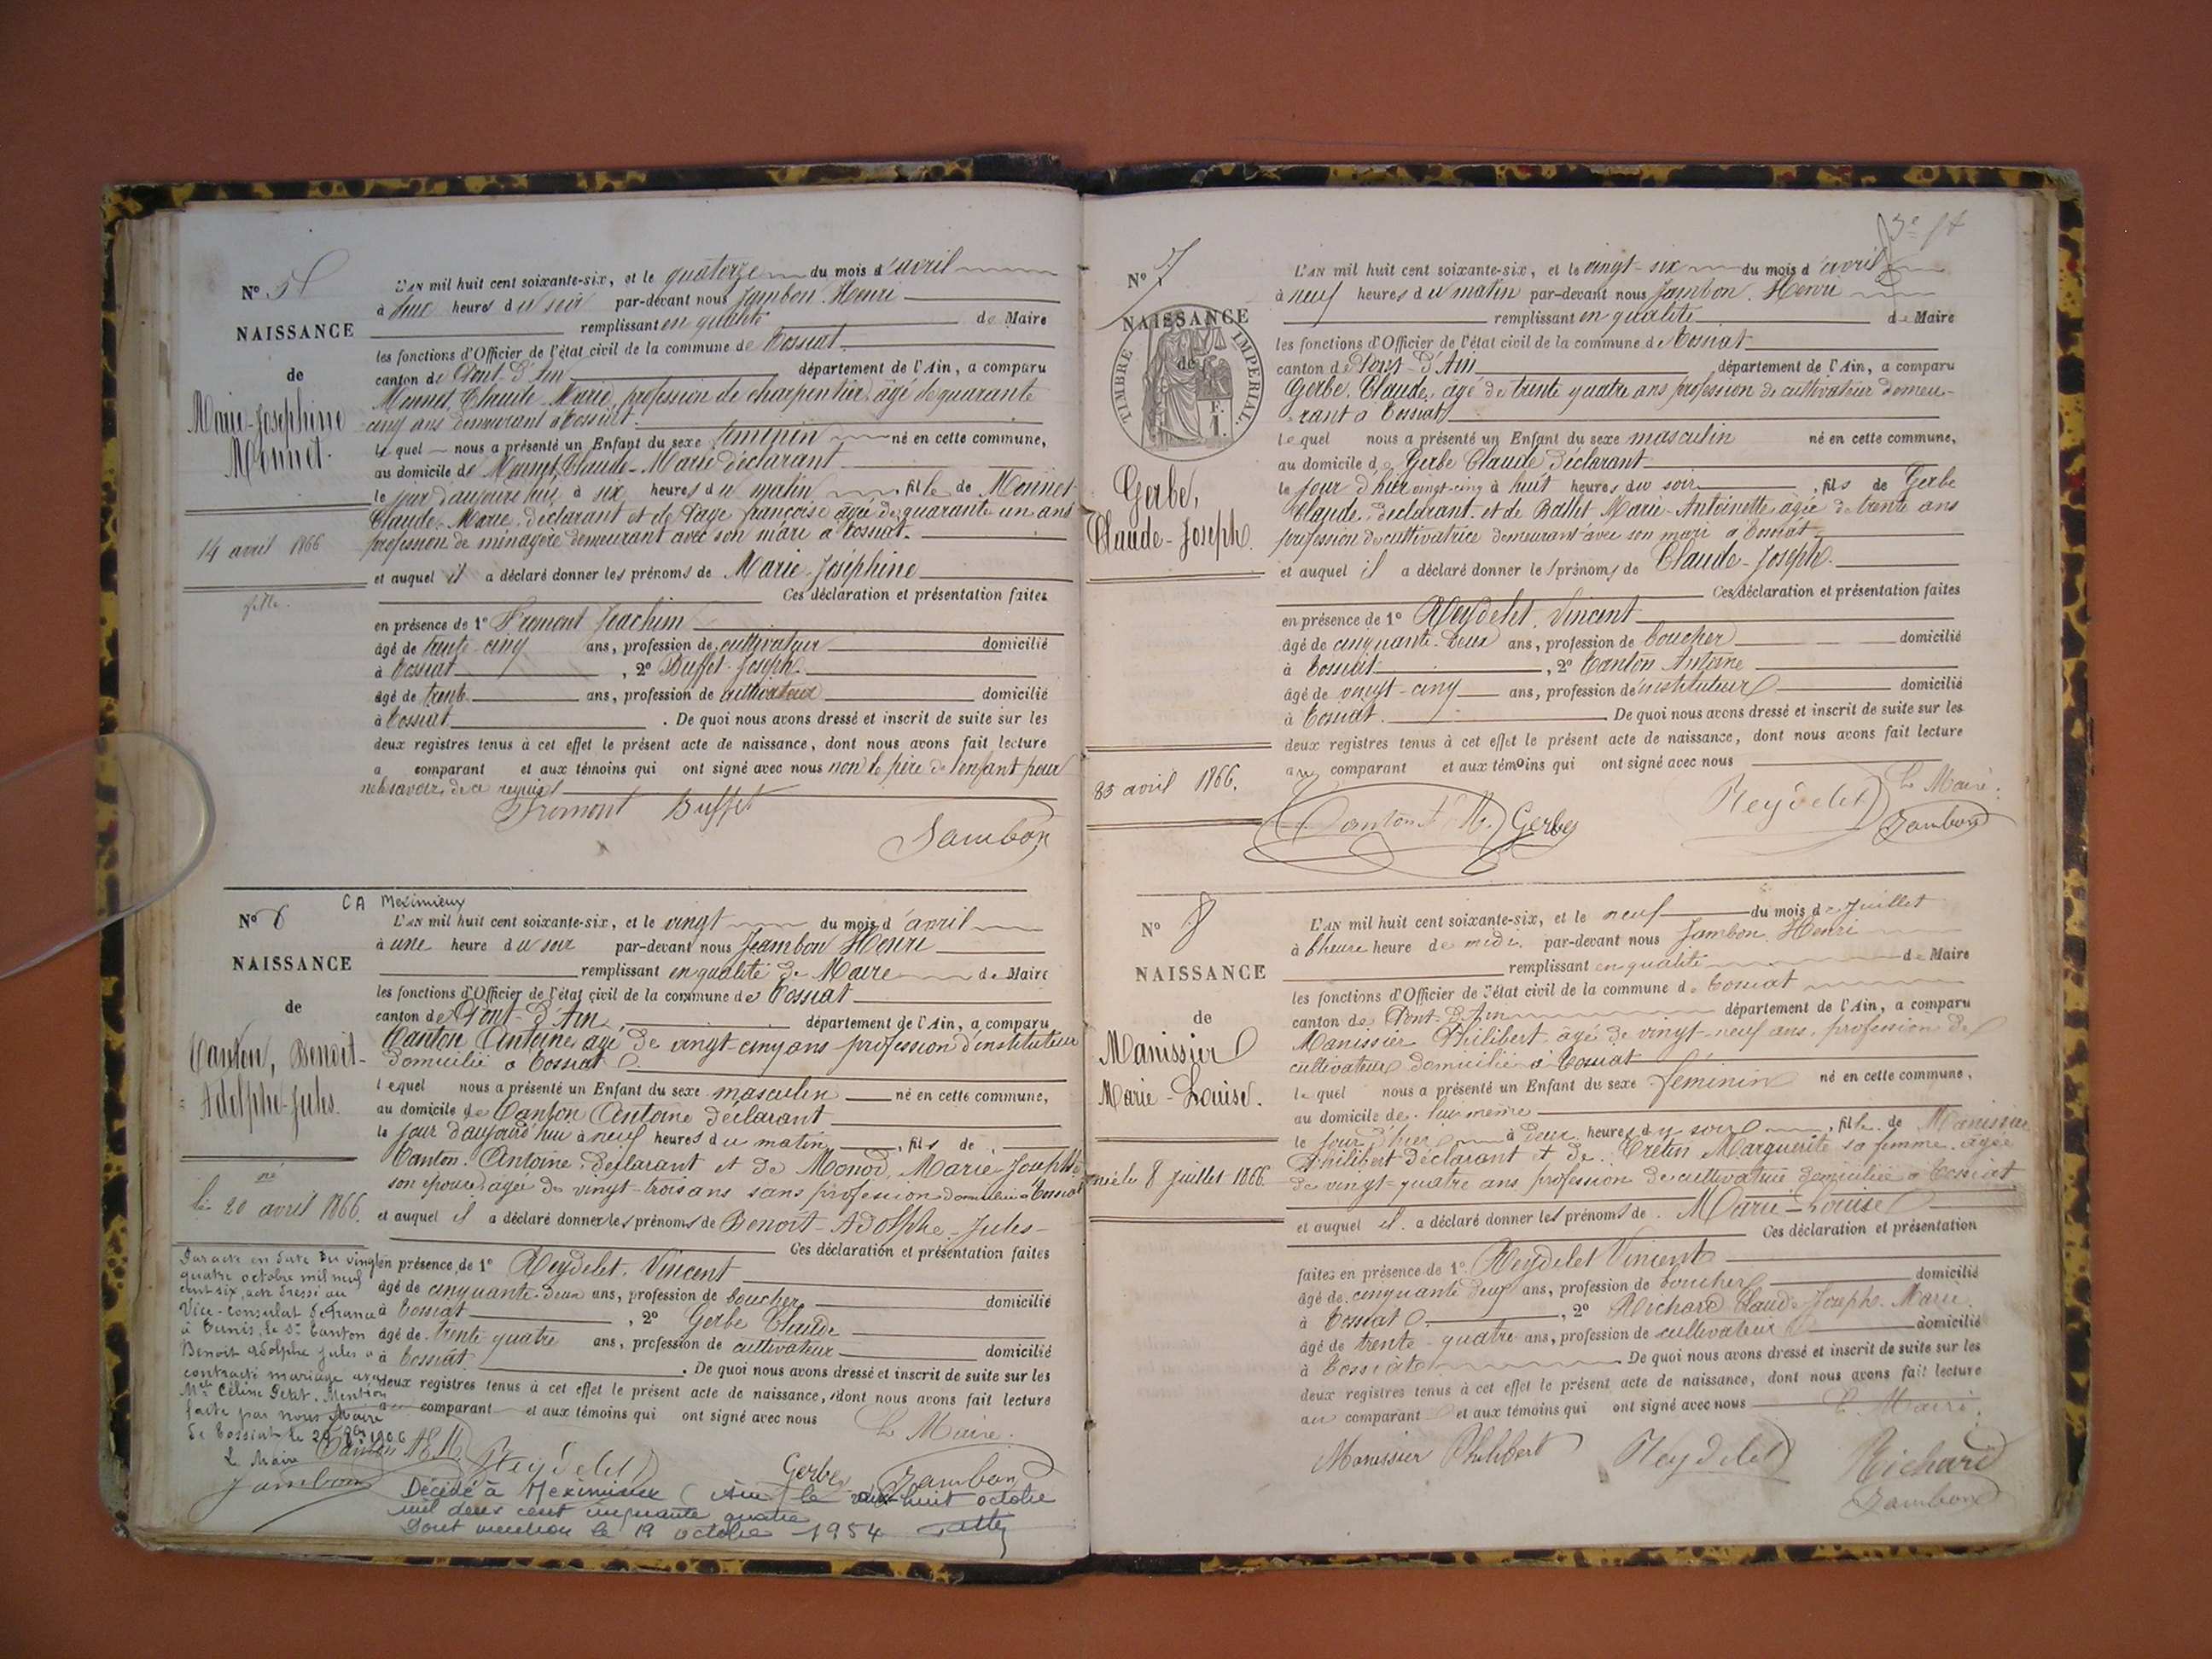 N° 5
NAISSANCE
de
Marie-Joséphine
Monnet.
14 avril 1866
fille.
L'AN mil huit cent soixante-six, et le quatorze du mois d'avril
à deux heures du soir par-devant nous Jambon Henri
remplissant en qualité de Maire
les fonctions d'Officier de l'état civil de la commune de Tossiat
canton de Pont-d'Ain département de l'Ain, a comparu
Monnet Claude-Marie, profession de charpentier, âgé de quarante
cinq ans demeurant à Tossiat.
lequel nous a présenté un Enfant du sexe féminin né en cette commune,
au domicile de Monnet Claude-Marie déclarant
le jour d'aujourd'hui à six heures du matin, fille de Monnet
Claude-Marie déclarant et de françoise âgée de quarante un ans
profession de ménagère demeurant avec son mari à Tossiat.
et auquel il a déclaré donner les prénoms de Marie-Joséphine
Ces déclaration et présentation faites
en présence de 1° Fromont Joachim
âgé de trente-cinq ans, profession de cultivateur domicilié
à Tossiat, 2° Buffet Joseph.
âgé de trente ans, profession de cultivateur domicilié
à Tossiat. De quoi nous avons dressé et inscrit de suite sur les
deux registres tenus à cet effet le présent acte de naissance, dont nous avons fait lecture
a comparant et aux témoins qui ont signé avec nous non le père de l'enfant pour
ne le savoir, de ce requis
Fromont Buffet
Jambon
CA Meximieux
N° 6
NAISSANCE
de
Canton, Benoit-
Adolphe-Jules.
né
le 20 avril 1866.
L'AN mil huit cent soixante-six, et le vingt du mois d'avril
à une heure du soir par-devant nous Jambon Henri
remplissant en qualité de Maire de Maire
les fonctions d'Officier de l'état civil de la commune de Tossiat
canton de Pont-d'Ain, département de l'Ain, a comparu
Canton Antoine âgé de vingt-cinq ans profession d'instituteur
domicilié à Tossiat
lequel nous a présenté un Enfant du sexe masculin né en cette commune,
au domicile de Canton Antoine déclarant
le jour d'aujourd'hui à neuf heures du matin, fils de
Canton Antoine, déclarant et de Monod, Marie Josephte
son épouse, âgée de vingt-trois ans sans profession domiciliée à Tossiat
et auquel il a déclaré donner les prénoms de Benoit-Adolphe-Jules-
Ces déclaration et présentation faites
en présence de 1° Reydelet Vincent
âgé de cinquante-deux ans, profession de boucher domicilié
à Tossiat, 2° Gerbe Claude
âgé de trente quatre ans, profession de cultivateur domicilié
à Tossiat. De quoi nous avons dressé et inscrit de suite sur les
deux registres tenus à cet effet le présent acte de naissance, dont nous avons fait lecture
au comparant et aux témoins qui ont signé avec nous
Le Maire.
Par acte en date du vingt
quatre octobre mil neuf
cent six, acte dressé au
Vice-consulat de France
à Tunis, le Sr Canton
Benoit Adolphe Jules a
contracté mariage avec
Mlle Céline Petit. Mention
faite par nous Maire
de Tossiat le 1906
Le Maire
Jambon
Canton Reydelet Gerbe Jambon
Décédé à Meximieux (Ain) le huit octobre
mil cent cinquante quatre
Dont mention le 19 octobre 1954
N° 7
NAISSANCE
de
TIMBRE IMPÉRIAL.
Gerbe,
Claude-Joseph.
avril 1866.
L'AN mil huit cent soixante-six, et le vingt-six du mois d'avril
à neuf heures du matin par-devant nous Jambon, Henri
remplissant en qualité de Maire
les fonctions d'Officier de l'état civil de la commune de Tossiat
canton de Pont-d'Ain département de l'Ain, a comparu
Gerbe, Claude, âgé de trente quatre ans profession de cultivateur demeu-
rant à Tossiat
lequel nous a présenté un Enfant du sexe masculin né en cette commune,
au domicile de Gerbe Claude déclarant
le jour d'hier vingt-cinq à huit heures du soir, fils de Gerbe
Claude, déclarant et de Ballet Marie-Antoinette, âgée de trente ans
profession de cultivatrice demeurant avec son mari à Tossiat
et auquel il a déclaré donner les prénoms de Claude-Joseph.
Ces déclaration et présentation faites
en présence de 1° Reydelet, Vincent
âgé de cinquante-deux ans, profession de boucher domicilié
à Tossiat, 2° Canton Antoine
âgé de vingt-cinq ans, profession d'instituteur domicilié
à Tossiat. De quoi nous avons dressé et inscrit de suite sur les
deux registres tenus à cet effet le présent acte de naissance, dont nous avons fait lecture
au comparant et aux témoins qui ont signé avec nous
Canton Gerbe Reydelet Le Maire:
Jambon
N° 8
NAISSANCE
de
Manissier
Marie-Louise.
née le 8 juillet 1866.
L'AN mil huit cent soixante-six, et le neuf du mois de Juillet
à heure de midi par-devant nous Jambon Henri
remplissant en qualité de Maire
les fonctions d'Officier de l'état civil de la commune de Tossiat
canton de Pont-d'Ain département de l'Ain, a comparu
Manissier Philibert âgé de vingt-neuf ans, profession de
cultivateur domicilié à Tossiat
lequel nous a présenté un Enfant du sexe féminin né en cette commune,
au domicile de lui même
le jour d'hier à deux heures du soir, fille de Manissier
Philibert déclarant et de Crétin Marguerite sa femme, âgée
de vingt-quatre ans, profession de cultivatrice domiciliée à Tossiat
et auquel il a déclaré donner les prénoms de Marie-Louise
Ces déclaration et présentation
faites en présence de 1° Reydelet Vincent
âgé de cinquante deux ans, profession de boucher domicilié
à Tossiat, 2° Richard Claude Joseph-Marie
âgé de trente-quatre ans, profession de cultivateur domicilié
à Tossiat. De quoi nous avons dressé et inscrit de suite sur les
deux registres tenus à cet effet le présent acte de naissance, dont nous avons fait lecture
au comparant et aux témoins qui ont signé avec nous
Le Maire.
Manissier Philibert Reydelet Richard
Jambon